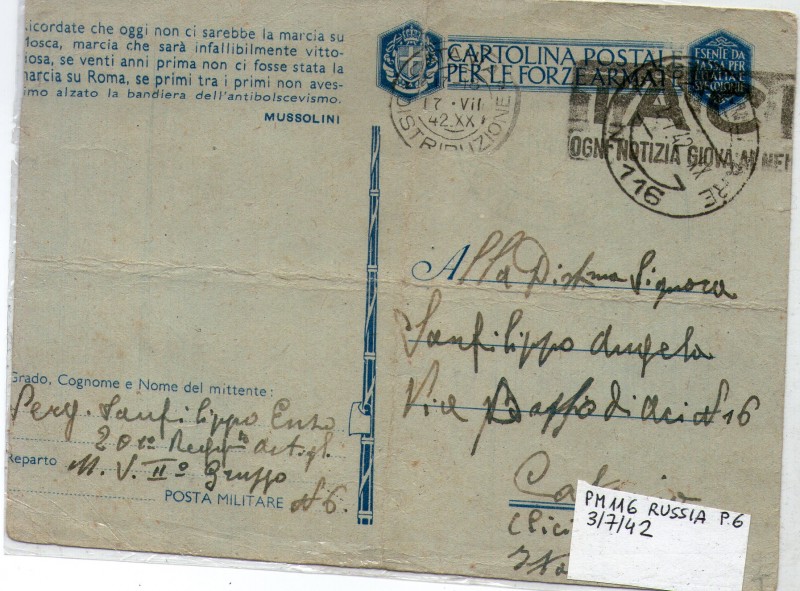 icordate che oggi non ci sarebbe la marcia su
Mosca, marcia che sarà infallibilmente vitto-
iosa, se venti anni prima non ci fosse stata la
marcia su Roma, se primi tra i primi non aves-
imo alzato la bandiera dell'antibolscevismo.
MUSSOLINI
CARTOLINA POSTALE
PER LE FORZE ARMATE
ESENTE DA
TASSA PER
17 · VII
42.XX
DISTRIBUZIONE
OGNI NOTIZIA GIOVA AL NEM
116
Alla Distma Signora
Sanfilippo Angela
Vice Baffo di Aci N 16
Grado, Cognome e Nome del mittente:
Serg. Sanfilippo Enzo
Reparto M. V. II° Gruppo
POSTA MILITARE N 6.
PM 116 RUSSIA P.6
3/7/42